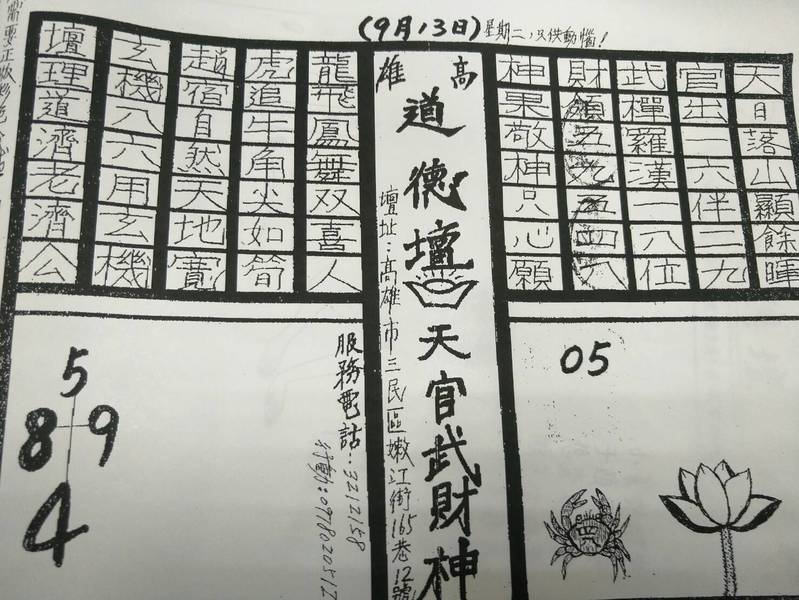 (9月13日)星期二，只供動惱！
天日落山顯餘暉
官出一六伴二九
武樿羅漢一八位
財領五九五四八
神果敬神只心願
高雄
道德壇
天官武財神
壇址：高雄市三民區嫩江街165巷12號
龍飛鳳舞双喜人
虎追牛角尖如筍
趙宿自然天地寬
玄機八六用玄機
壇理道濟老濟公
05
四
服務電話：3212158
行動：0978020512
5
8 9
4